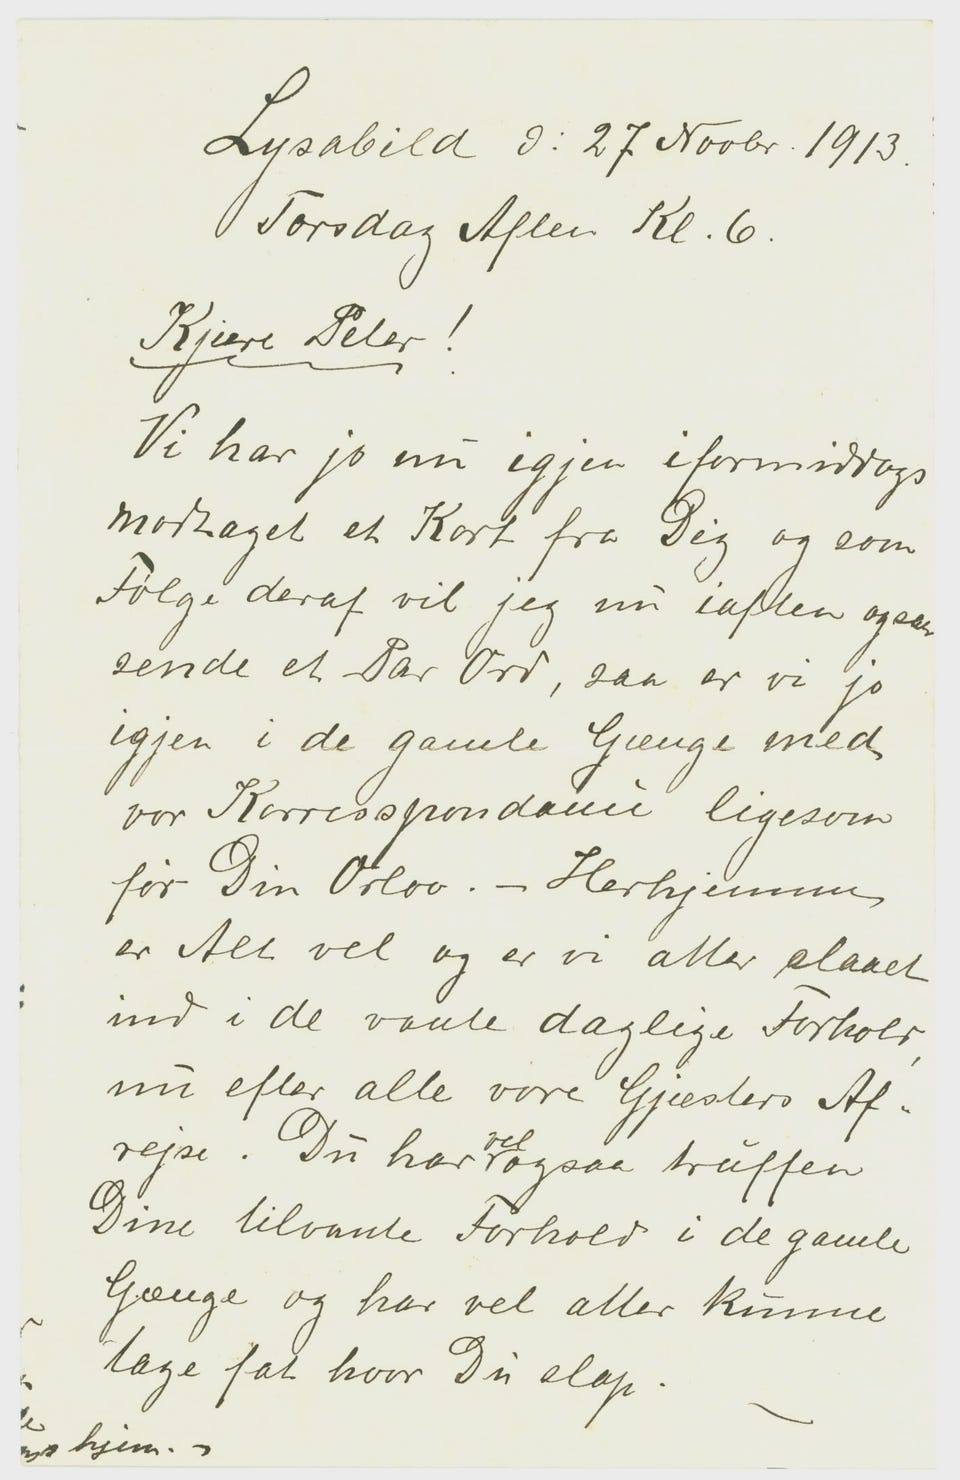 Lysabild d: 27 Novbr. 1913.
Torsdag Aften Kl. 6.
Kjære Peter!
Vi har jo nu igjen iformiddags
modtaget et Kort fra Dig og som
Følge deraf vil jeg nu iaften ogsaa
sende et Par Ord, saa er vi jo
igjen i de gamle Gænge med
vor Korresspondance ligesom
før Din Orlov. – Herhjemme
er Alt vel og er vi atter slaaet
ind i de vante daglige Forhold,
nu efter alle vore Gjæsters Af-
rejse. Du har vel ogsaa truffen
Dine tilvante Forhold i de gamle
Gænge og har vel atter kunne
tage fat hvor Du slap.
hjem. –